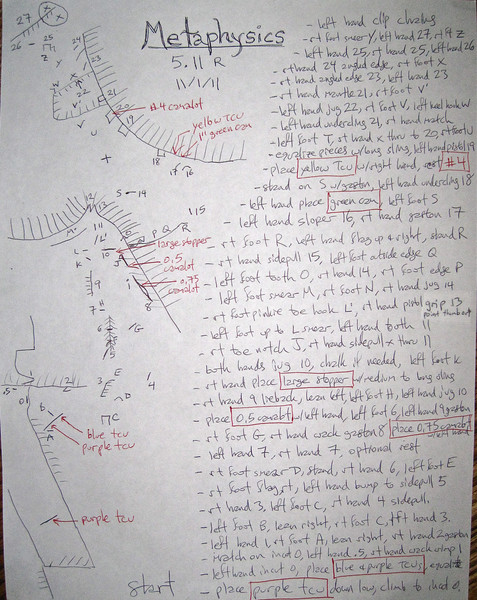 Metaphysics
5.11 R
11/1/11
- left hand clip chains
- rt foot smear Y, left hand 27, rt 9 Z
- left hand 25, rt hand 25, left hand 26
- rt hand 24 angled edge, rt foot X
- rt hand angled edge 23, left hand 23
- rt hand mantle 21, rt foot V
- left hand jug 22, rt foot V, left heel hook W
- left hand undercling 21, rt hand match
- left foot T, rt hand x thru to 20, rt foot U
- equalize pieces w/ long sling, left hand pistol 19
- place yellow TCU w/right hand, #4
- stand on S w/gaston, left hand undercling 18
- left hand place green cam, left foot S
- left hand sloper 16, rt hand gaston 17
- rt foot R, left hand flag up & right, stand R
- rt hand sidepull 15, left foot outside edge Q
- left foot tooth O, rt hand 14, rt foot edge P
- left foot smear M, rt foot N, rt hand jug 14
- rt foot pinkie toe hook L', rt hand pistol grip 13
point thumb out
- left foot up to L smear, left hand tooth 11
- rt toe notch J, rt hand sidepull x thru 11
- both hands jug 10, chalk if needed, left foot K
- rt hand place large stopper w/ medium to long sling
- rt hand 9 lieback, lean left, left foot H, left hand jug 10
- place 0.5 camalot w/left hand, left foot 6, left hand 9 gaston
- rt foot G, rt hand crack gaston 8, place 0.75 camalot
w/ left hand
- left hand 7, rt hand 7, optional rest
- rt foot smear D, stand, rt hand 6, left foot E
- rt foot flag rt, left hand bump to sidepull 5
- rt hand 3, left foot C, rt hand 4 sidepull
- left foot B, lean right, rt foot C, left hand 3.
- left hand 1, rt foot A, lean right, rt hand 2 gaston
- match on incut 0, left hand .5, rt hand crack crimp 1
- left hand incut 0, place blue & purple TCUs, equalize
- place purple tcu down low, climb to incut 0.
start
27 X
26
25
Z
24
Y
23
W
22
X
21
V
20
U
T
#4 camalot
yellow TCU
green cam
19
18
17
16
S
14
13
12
M
15
11
L'
O
P Q R
L
10
K
J
large stopper
0.5 camalot
0.75 camalot
9
8
7 H
6
G
5
E
4
3
D
C
.5
0
1
2
B
A
blue tcu
purple tcu
purple tcu